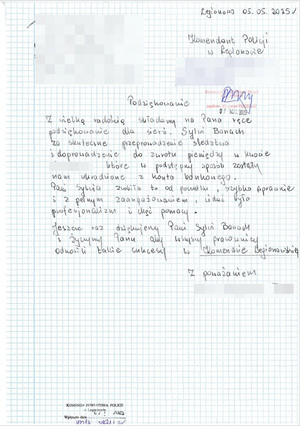 Legionowo 05.05.2025 r
Komendant Policji
w Legionowie
Podziękowanie
Z wielką radością składamy na Pana ręce
podziękowanie dla sierż. Sylwii Banach
za skuteczne przeprowadzenie śledztwa
i doprowadzenie do zwrotu pieniędzy w kwocie
które w podstępny sposób zostały
nam ukradzione z konta bankowego.
Pani Sylwia zrobiła to od początku, szybko sprawnie
i z pełnym zaangażowaniem,
profesjonalizm i chęć pomocy.
Jeszcze raz dziękujemy Pani Sylwii Banach
i życzymy Panu aby wszyscy pracownicy
odnosili takie sukcesy w Komendzie Legionowskiej
Z poważaniem
KOMENDA POWIATOWA POLICJI
w Legionowie
Wpłynęło dnia